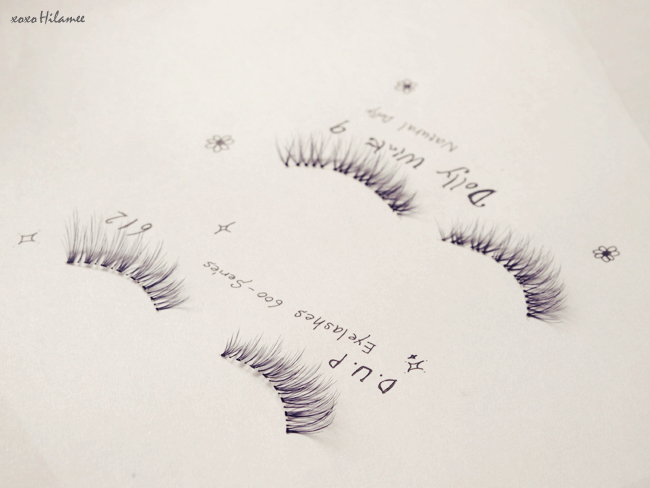 xoxo Hilamee
Dolly Wink 9
Natural Dolly
D.U.P
Eyelashes 600-Series
612